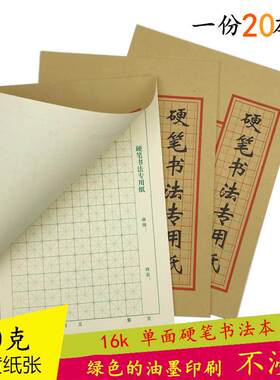 一份20本
硬笔书法专用纸
硬笔书法专用纸
硬笔书法专用纸
克
纸张
16k 单面硬笔书法本
绿色的油墨印刷 不